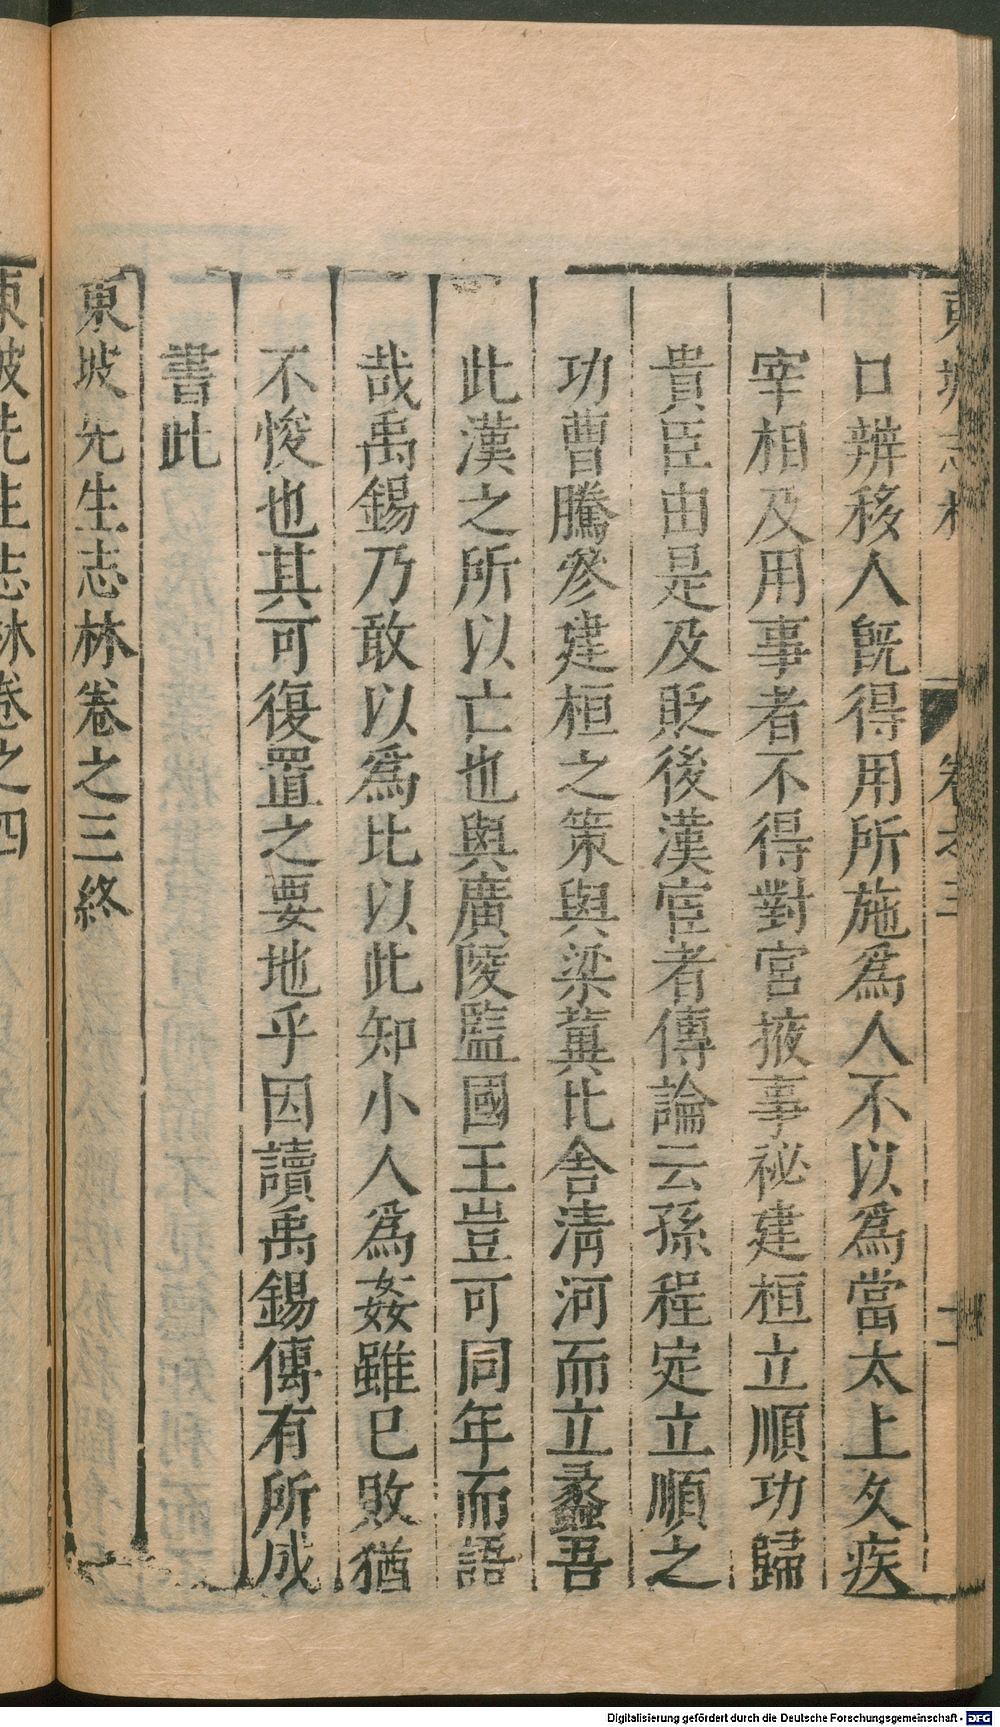 口辨移人旣得用所施爲人不以爲當太上久疾
宰相及用事者不得對宮掖事祕建桓立順功歸
貴臣由是及貶後漢宦者傳論云孫程定立順之
功曹騰參建桓之策與梁冀比舍清河而立蠡吾
此漢之所以亡也與廣陵監國王豈可同年而語
哉禹錫乃敢以爲比以此知小人爲姦雖已敗猶
不悛也其可復置之要地乎因讀禹錫傳有所咸
書此
東坡先生志林卷之三終
東坡先生志林卷之四
Digitalisierung gefördert durch die Deutsche Forschungsgemeinschaft - DFG